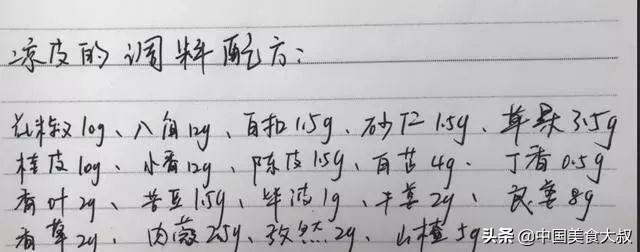 凉皮的调料配方：
花椒10g、八角12g、白扣1.5g、砂仁1.5g、草果3.5g
桂皮10g、小香12g、陈皮1.5g、百芷4g、丁香0.5g
香叶2g、苦豆1.5g、毕波1g、干姜2g、良姜8g
香草2g、内蔻2.5g、孜然2g、山楂5g
头条@中国美食大叔